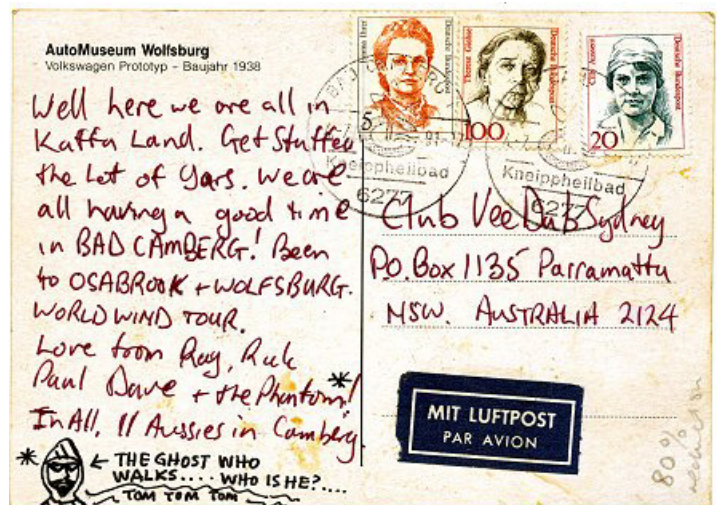 AutoMuseum Wolfsburg
Volkswagen Prototyp – Baujahr 1938
Well here we are all in
Kaffa Land. Get Stuffed
the Lot of Yars. We are
all having a good time
in BAD CAMBERG! Been
to OSABROOK + WOLFSBURG.
WORLD WIND TOUR.
Love from Ray, Rik
Paul Dave + the Phantom! *
In All, 11 Aussies in Camberg.
* ← THE GHOST WHO
WALKS.... WHO IS HE?....
TOM TOM TOM
Deutsche Bundespost
Therese Giehse
100
Deutsche Bundespost
Cilly Aussem
20
Deutsche Bundespost
Kneippheilbad
6277
Kneippheilbad
6277
Club VeeDub Sydney
P.O. Box 1135 Parramatta
NSW. AUSTRALIA 2124
MIT LUFTPOST
PAR AVION
80%
reduction